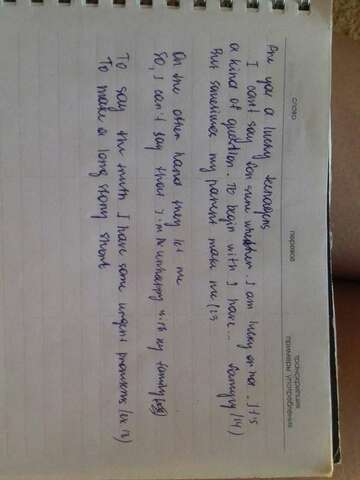 слово перевод транскрипция
примеры употребления
Are you a lucky teenagers
I can't say for sure whether I am lucky or not. It's
a kind of question. To begin with I have... family (14)
But sometimes my parent make me (23
On the other hand they let me
So, I can't say that I'm unhappy with my family
To say the truth I have some urgent problems
To make a long story short